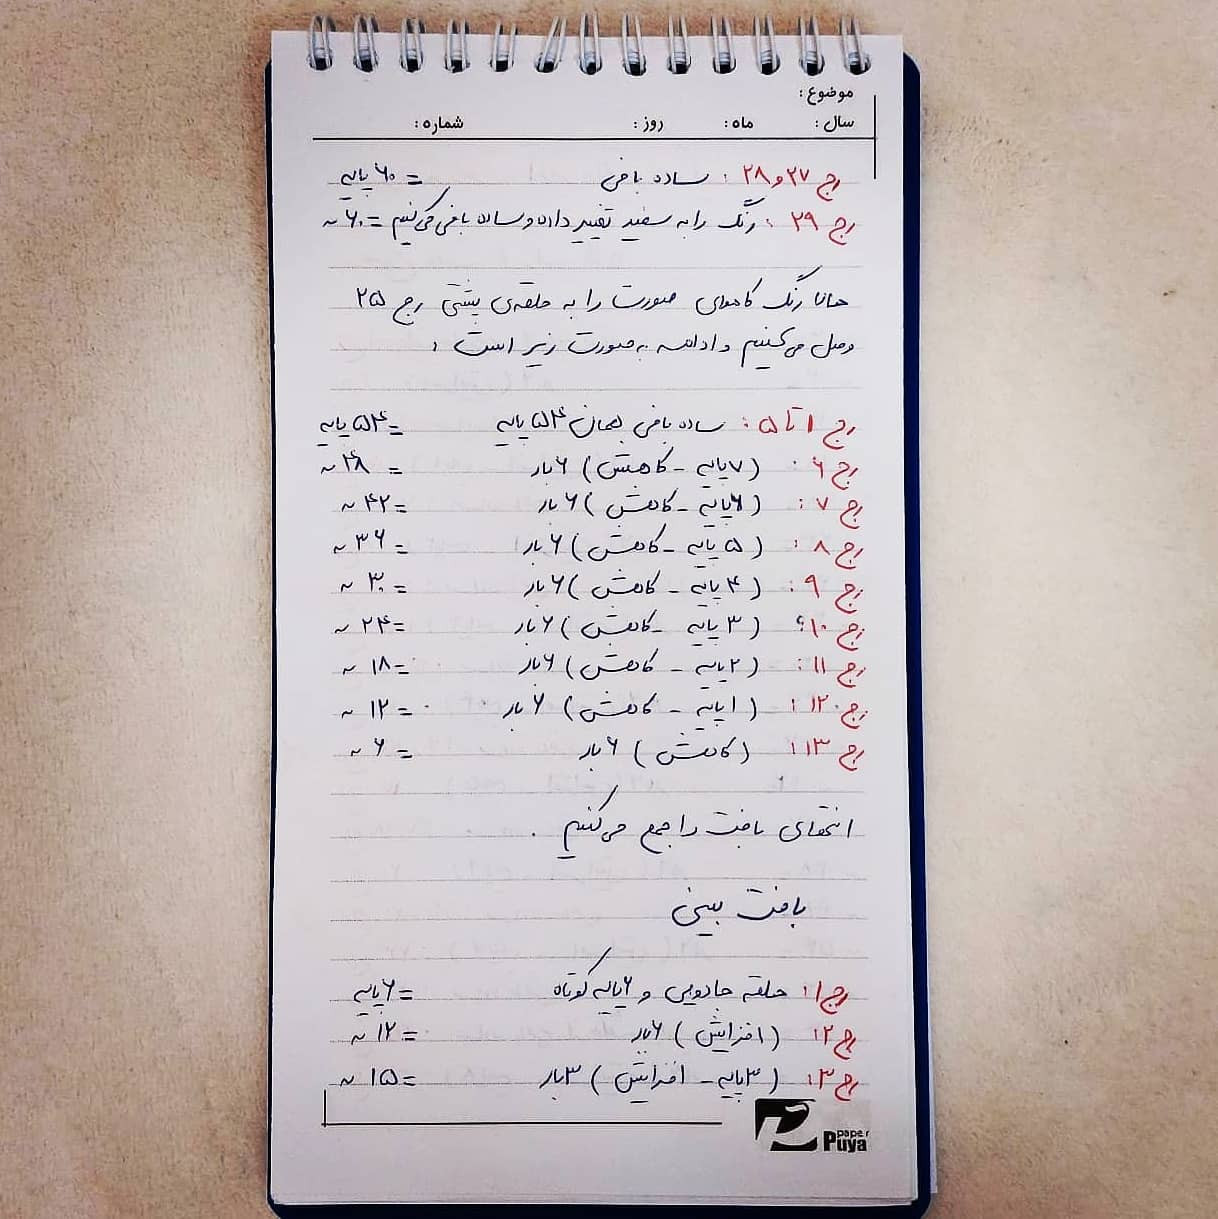 موضوع :
سال : ماه : روز : شماره :
رج ۲۷ و ۲۸ : ساده بافی = ۶۰ پایه
رج ۲۹ : رنگ را به سفید تغییر داده و ساده بافی می‌کنیم = ۶۰ ~
حالا رنگ کاموای صورت را به حلقه‌ی پشتی رج ۲۵
وصل می‌کنیم و ادامه به صورت زیر است :
رج ۱ تا ۵ : ساده بافی همان ۵۴ پایه = ۵۴ پایه
رج ۶ : (۷ پایه - کاهش) ۶ بار = ۴۸ ~
رج ۷ : (۶ پایه - کاهش) ۶ بار = ۴۲ ~
رج ۸ : (۵ پایه - کاهش) ۶ بار = ۳۶ ~
رج ۹ : (۴ پایه - کاهش) ۶ بار = ۳۰ ~
رج ۱۰ : (۳ پایه - کاهش) ۶ بار = ۲۴ ~
رج ۱۱ : (۲ پایه - کاهش) ۶ بار = ۱۸ ~
رج ۱۲ : (۱ پایه - کاهش) ۶ بار = ۱۲ ~
رج ۱۳ : (کاهش) ۶ بار = ۶ ~
انتهای بافت را جمع می‌کنیم .
بافت بینی
رج ۱ : حلقه جادویی و ۶ پایه کوتاه = ۶ پایه
رج ۲ : (افزایش) ۶ بار = ۱۲ ~
رج ۳ : (۳ پایه - افزایش) ۳ بار = ۱۵ ~
paper
Puya